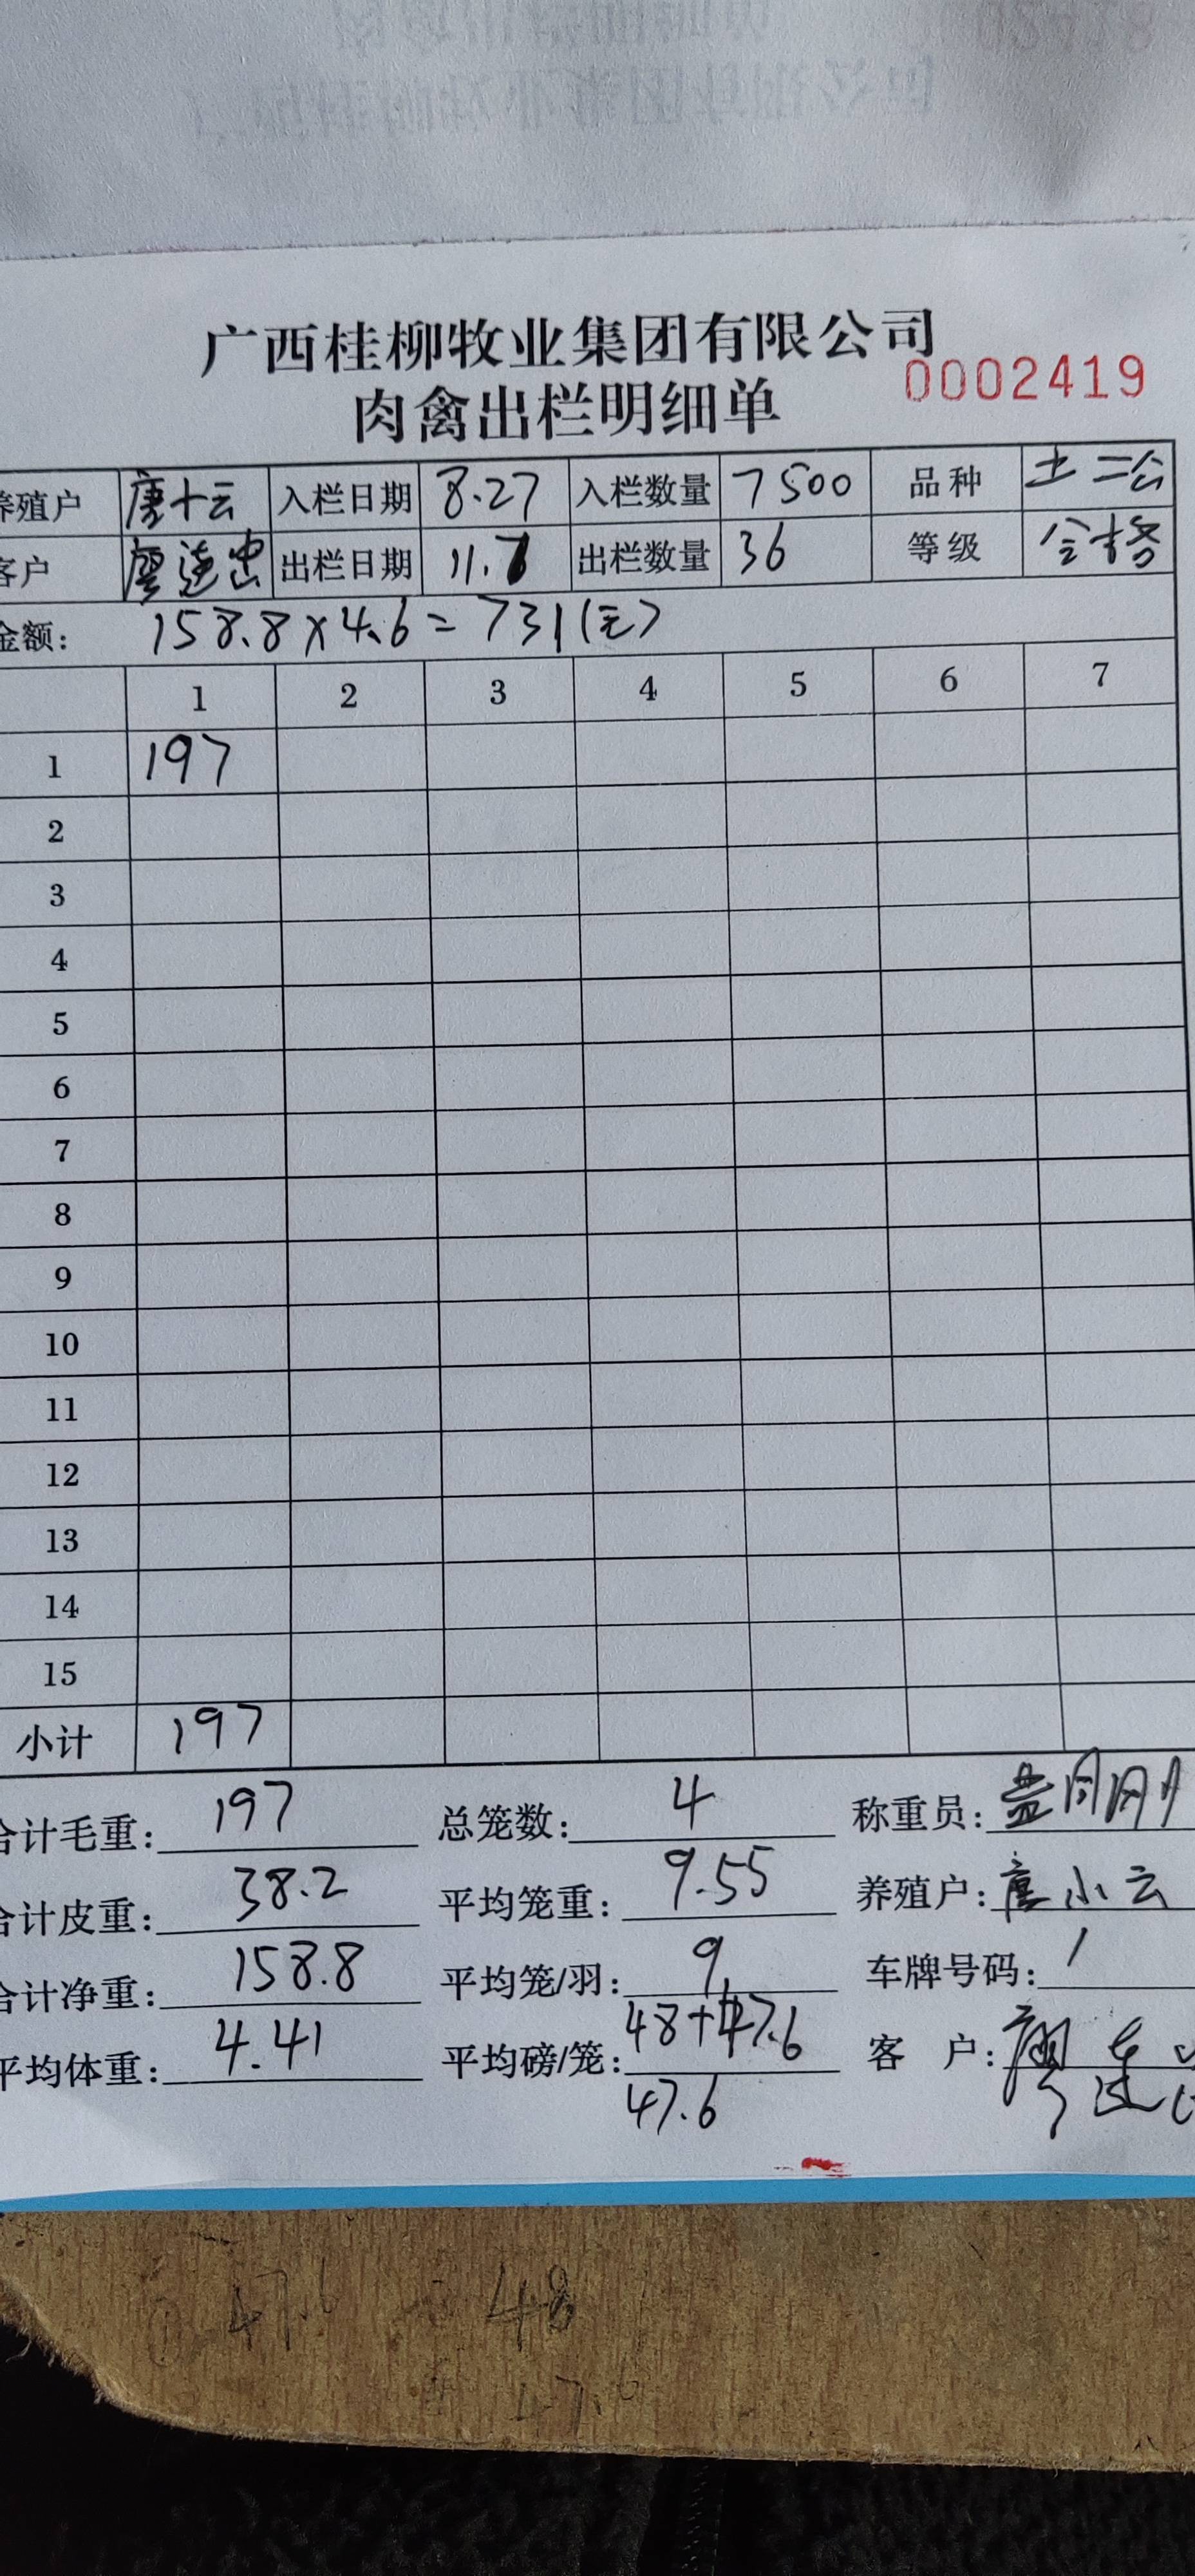 广西桂柳牧业集团有限公司
0002419
肉禽出栏明细单
养殖户 唐小云 入栏日期 8.27 入栏数量 7500 品种 土二公
客户 廖连忠 出栏日期 11.7 出栏数量 36 等级 合格
金额: 158.8×4.6=731(元)
1 2 3 4 5 6 7
1 197
2
3
4
5
6
7
8
9
10
11
12
13
14
15
小计 197
合计毛重: 197 总笼数: 4 称重员:
合计皮重: 38.2 平均笼重: 9.55 养殖户: 唐小云
合计净重: 158.8 平均笼/羽: 9 车牌号码: /
平均体重: 4.41 平均磅/笼: 48+47.6 客 户: 廖连
47.6
47.6 48